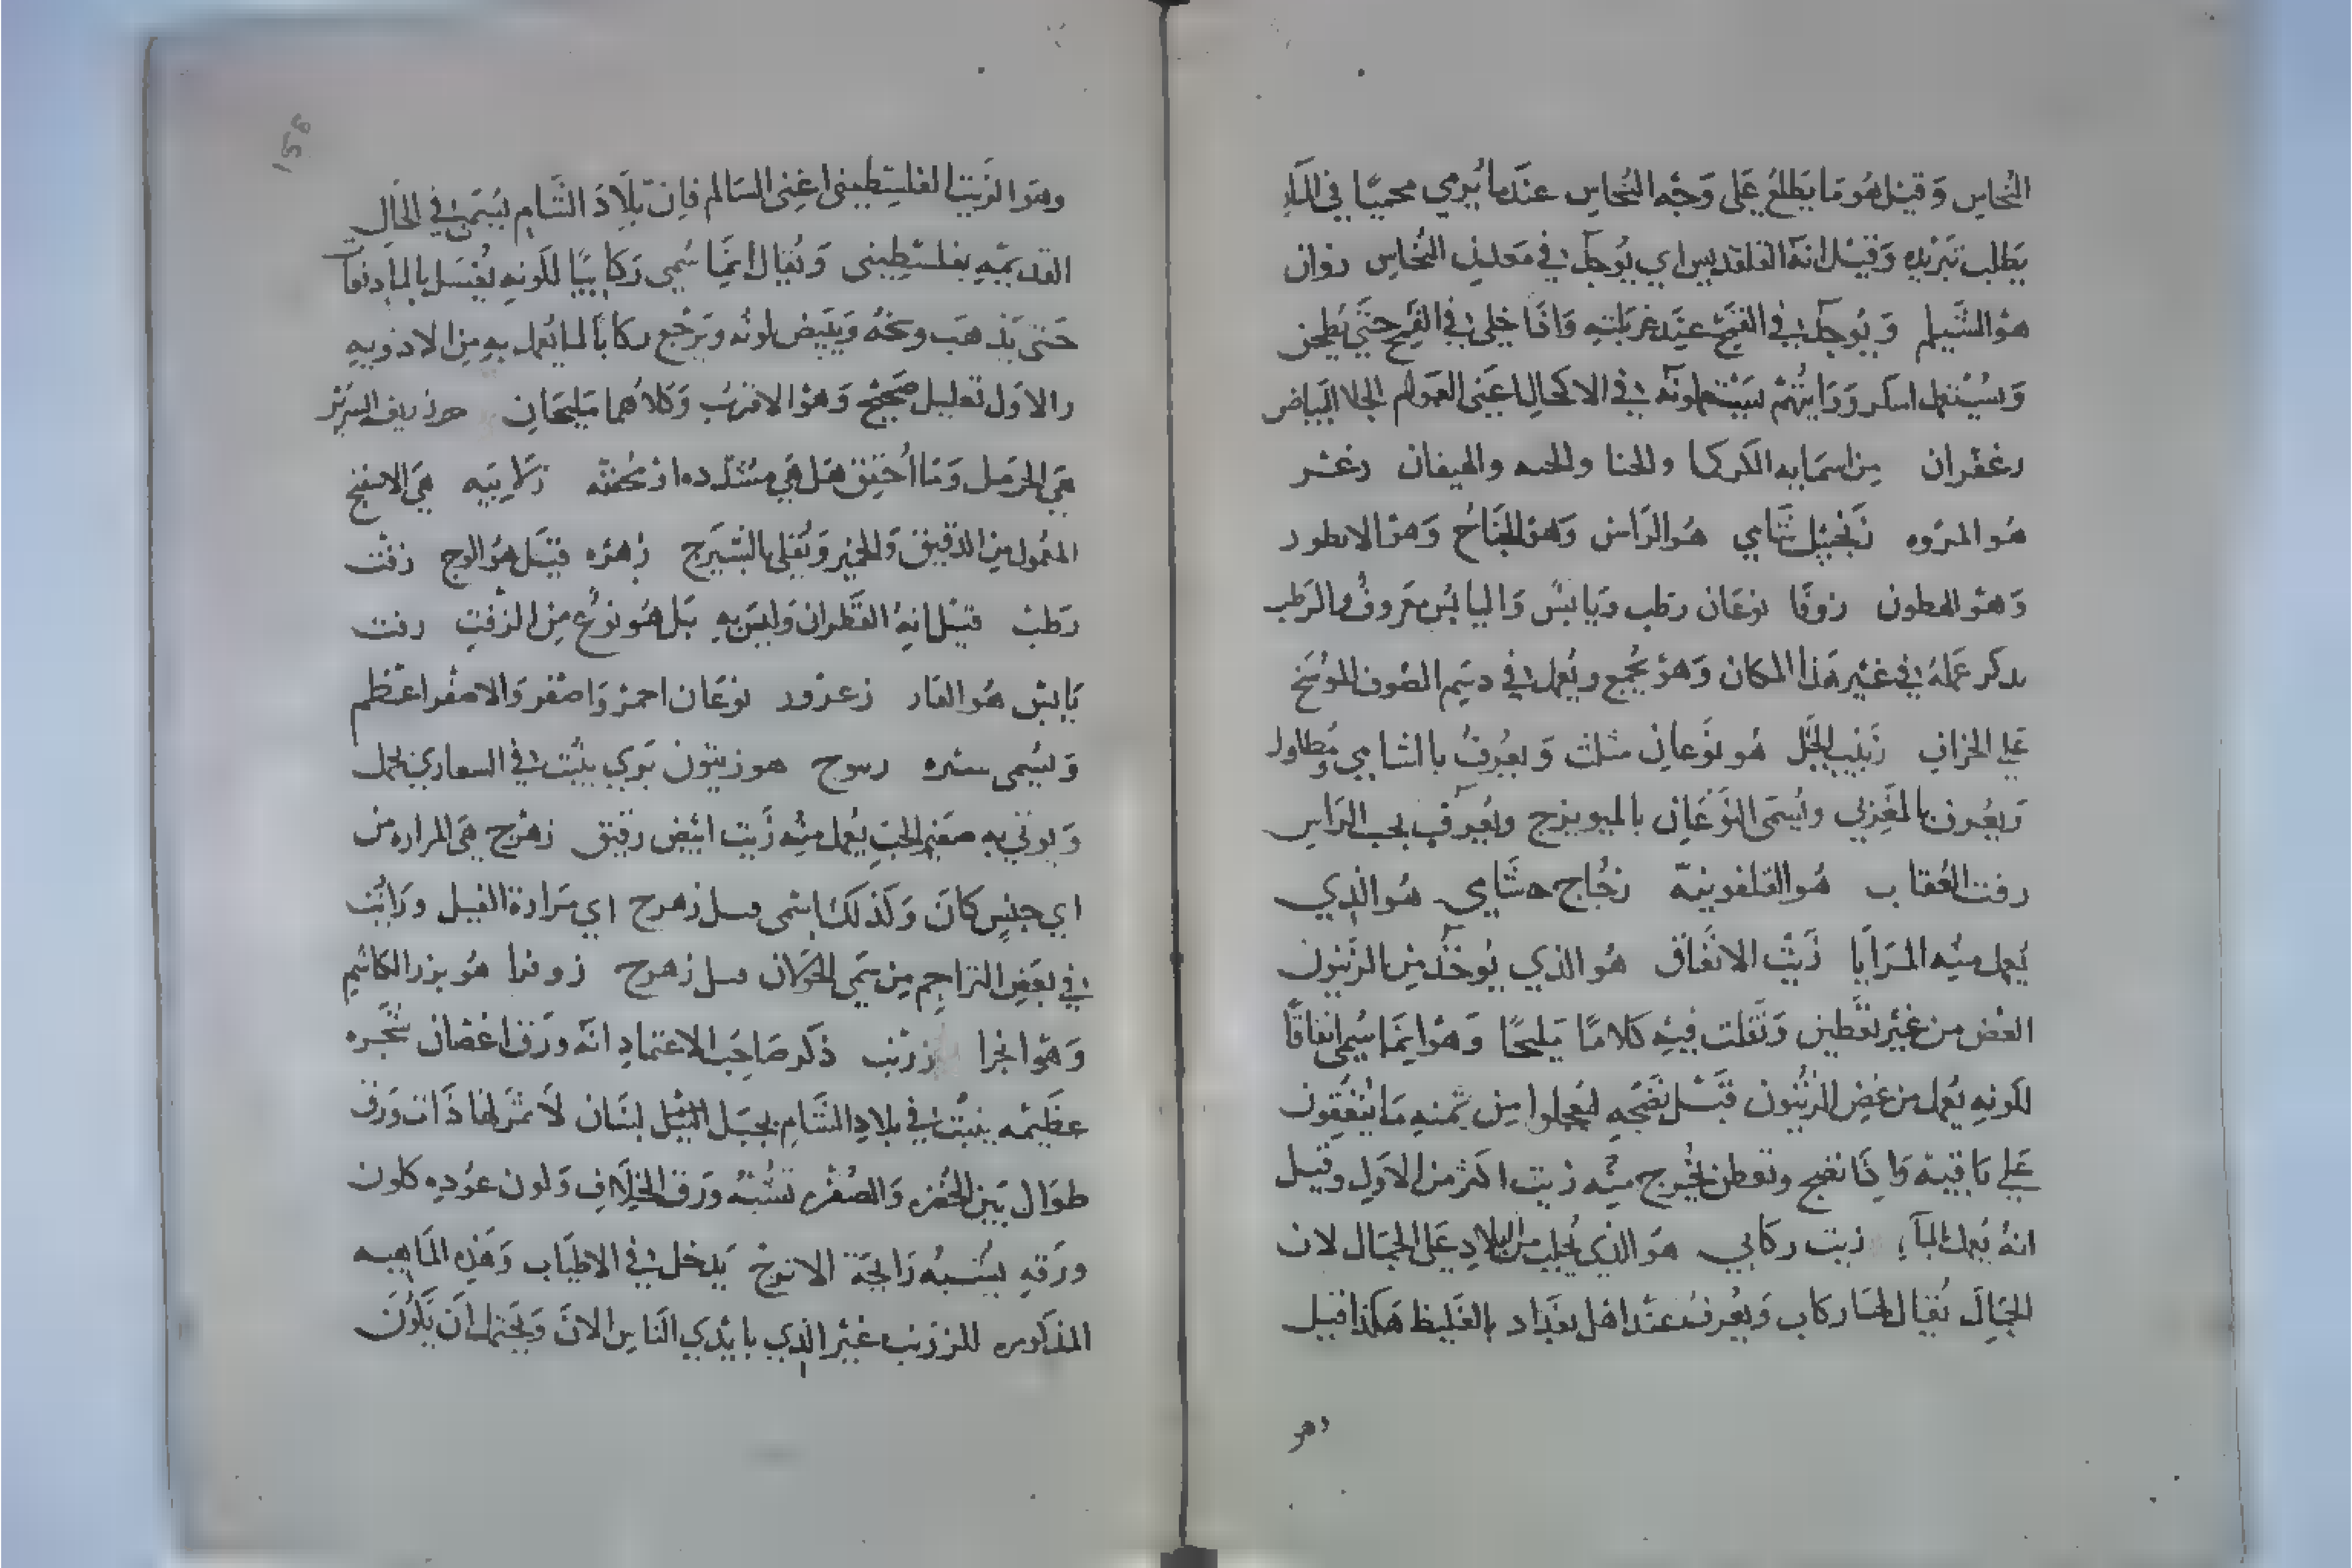 النحاس وَقيل هُو مَا يَطلعُ عَلى وَجه النحاس عندَما يُرمي محميّا في الماء
يَطلب تبريده وَقيل انه القلقديس اي يُوجد في مَعدن النحاس زوان
هوَ الشيلم وَيُوجد في القمح عند غربلته وَاذا خلي في القمح حتى يطحن
وَيُستعمل اسكر وَرَايتهم يستعملونه في الاكحال اعَني العَوام لجلا البياض
زعفران من اسمايه الكركما والجنا والهيفان زغبر
هُو المروه زنجبيل شَامي هوَ الراس وَهوَ الجناح وَهوَ
وَهوَ زوفا نوعان رطب وَيابسٌ وَاليابس معروفٌ والرطب
يدكر عَمله في غير هَذا المكان وَهوَ يجمع ويُعمل في دسم الصوف الموسَخ
عَلي الخزاف زبيب الجبَل هُو نوعان مثلث وَيعُرفُ بالشامي ومُطاول
وَيعُرف بالمغربي ويُسمى النَوعَان بالميويزج ويُعرف بحب الراس
زفت العُقاب هُو القلفونية زجُاج شَامي هُو الذي
يُعمل منه المرَايا زَيتُ الانفاق هو الذي يُوخذ من الزيتون
الغض من غير تعَطين وَنقلت فيه كلامًا مَليحًا وَهوَ انما سُمي انفاقًا
لكونه يُعمل من غض الزيتون قبَل نضجه ليجعلوا من ثمنه مَا ينفقون
عَلي بَاقيه وَاذا نضج وتعطن يخُرج منه زيت اكثر من الاول وقيل
انهُ يعمل بالمآء زيت ركابي هوَ الذي يُجلب من البلاد عَلى الجمَال لان
الجمَال يُقال لهَا ركاب وَيعُرف عند اهل بغَداد بالغَليظ هَكذا قيل
وهو
وهوَ الزَيت الفلسطيني اعَني السَالم فاِن بلَادَ الشَام يسُمى في الحَال
القديمَه بفلسطيني وَيُقال انمَا سُمي رَكابيًا لكونه يُغسَل بالماء دفعات
حَتى يَذهَب وسخه وَيبيَض لونه وَيرَجع ركابًا لما يُعمل به من الادويه
والاوَل تعليل صَحيح وَهوَ الاقرب وَكلاهُما مَليحَان
هيَ الحرَمل وَمَا احُقق هَل هيَ مشدّده اَو مُخففه زلابيَه هيَ الاسفنج
المعمول من الدقيق وَالخمير وَيُقلى بالشيرَج زهره قيَل هوَ الوج زفت
رَطبُ قيل انه القَطران وَليسَ به بَل هُو نوعُ من الزفت زفت
يَابسُ هُو القار زعرور نوعَان احمرُ وَاصفر وَالاصفر اعَظم
وَيسُمى هو زيتون بَري ينبت في يحمل
وَيوتي به صغير الحب يُعمل منه زَيت ابيَض رقيق زهرج هيَ المراره من
اي جنسٍ كانَ وَكذلك زهرج اي مَرارة الفيل ورَايت
في بعَض التراجم من سَمى الخولان زهرج زوفرا هُو بزر الكاشم
وَهوَ زرنب ذكر صَاحب الاعتماد انه وَرق اغصان شَجره
عظَيمه ينبت في بلاد الشَام بجبَل لبنان لَا ثمَر لها ذَات وَرق
طوَال بَين الخضره وَالصُفره تشُبه وَرق الخِلاف وَلون عوُده كلون
ورَقه يشبه رَايحة الاترج يَدخل في الاطيَاب وَهَذه المَاهيه
المذكوره للزرنب غير الذي بايَدي النَاس الانَ وَيحتمل ان يكُون